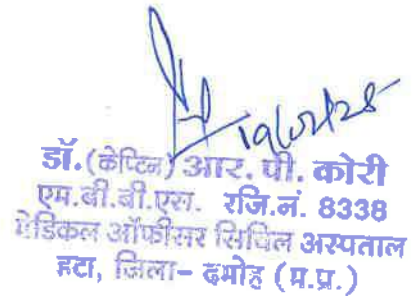 19/02/25
डॉ.(केप्टिन) आर. पी. कोरी
एम.बी.बी.एस. रजि.नं. 8338
मेडिकल ऑफीसर सिविल अस्पताल
हटा, जिला- दमोह (म.प्र.)